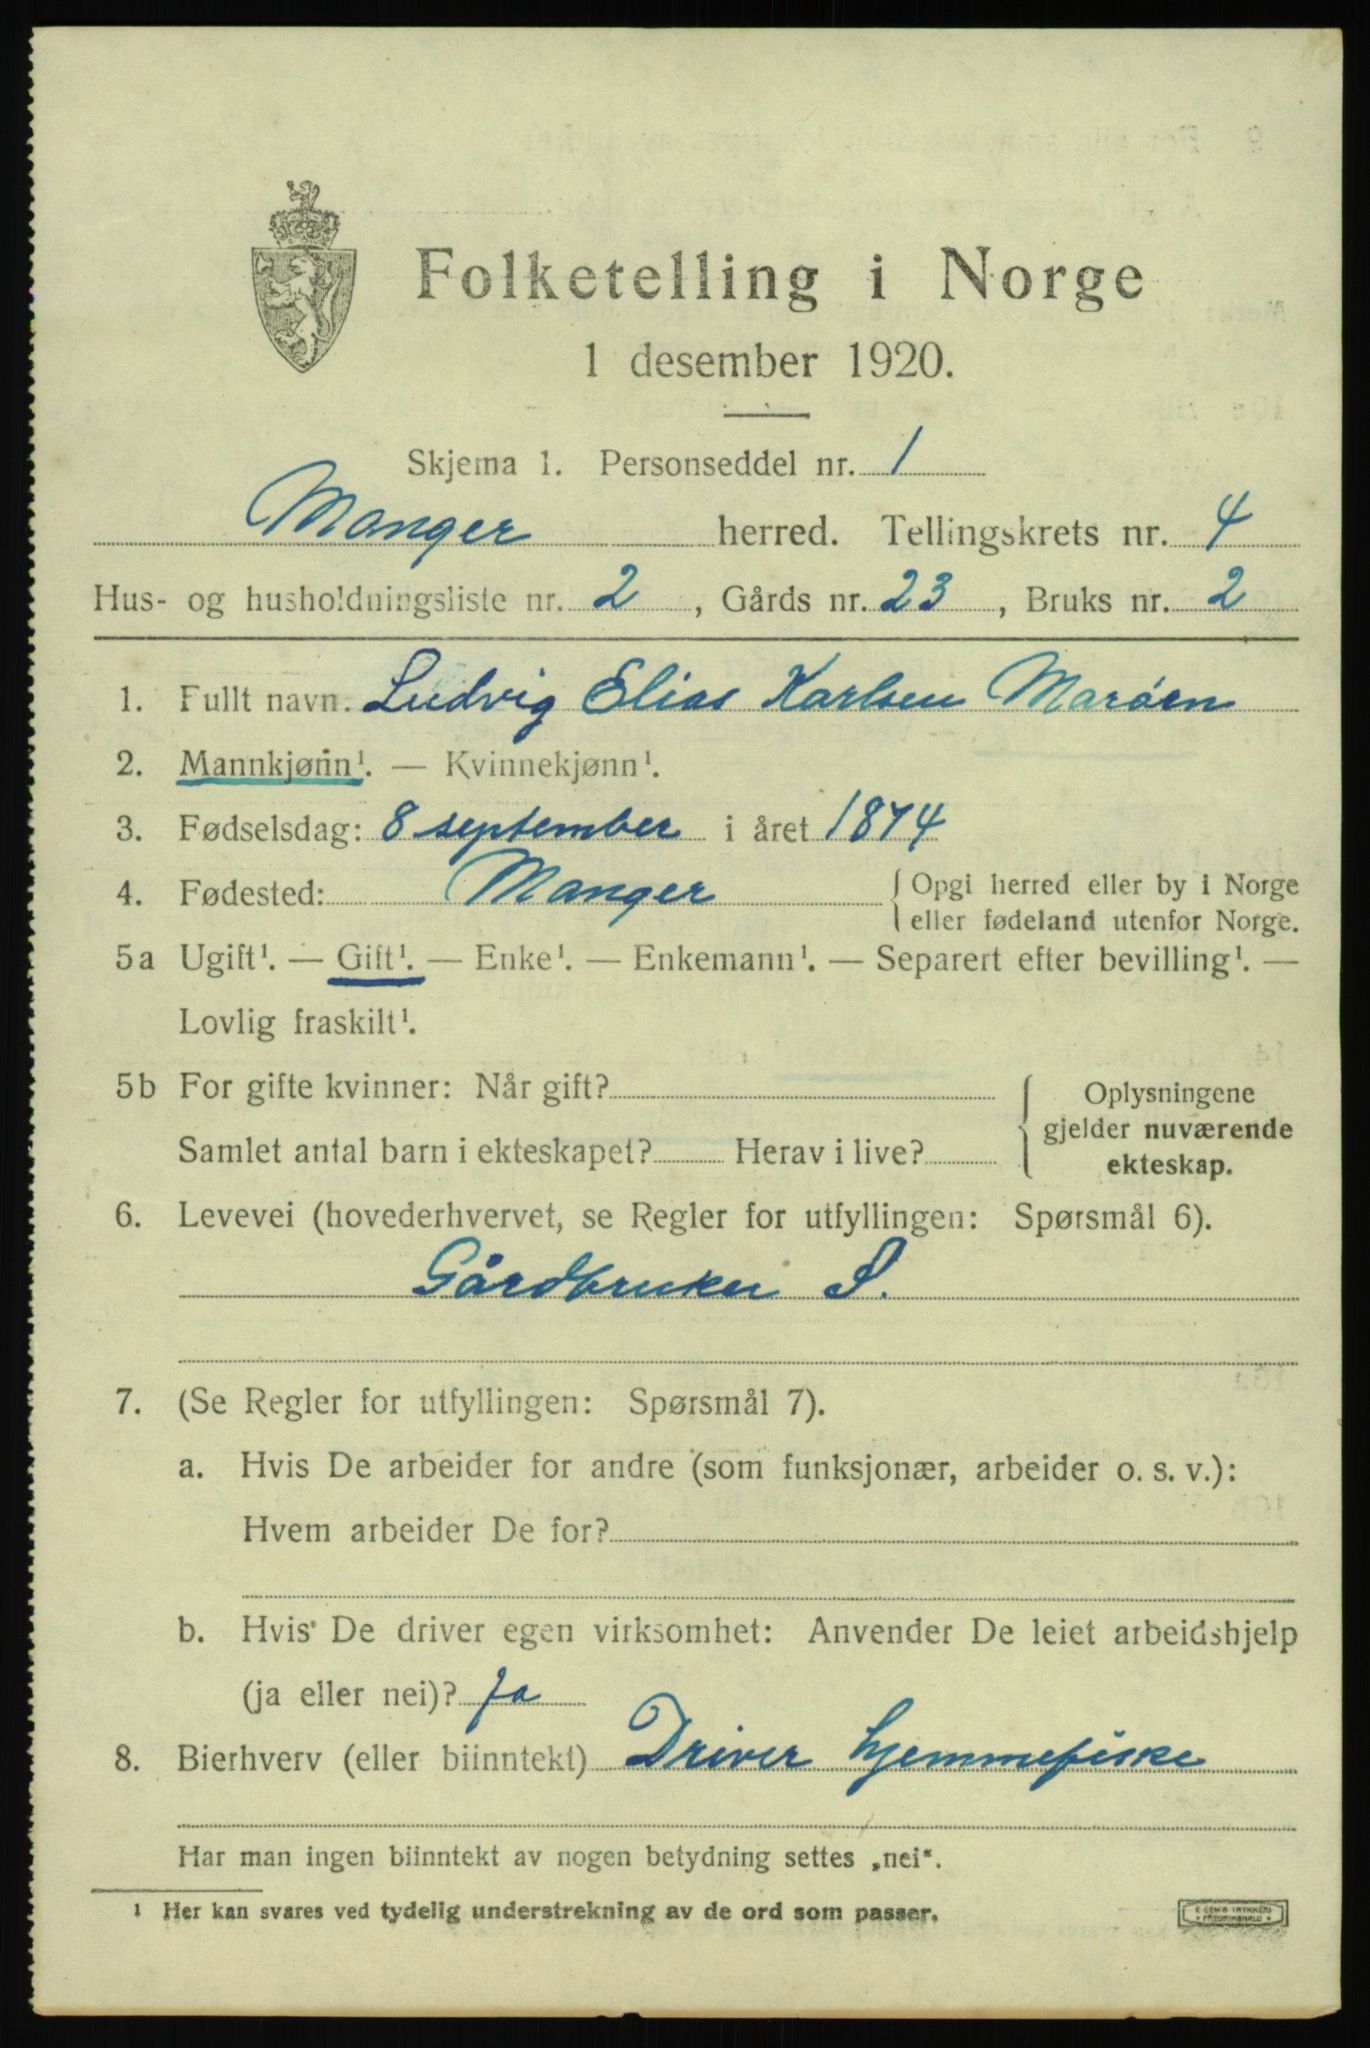 Folketelling i Norge
1 desember 1920.
Skjema 1. Personseddel nr. 1
Manger herred. Tellingskrets nr. 4
Hus- og husholdningsliste nr. 2, Gårds nr. 23, Bruks nr. 2
1. Fullt navn. Ludvig Elias Karlsen Marøen
2. Mannkjønn¹. — Kvinnekjønn¹.
3. Fødselsdag: 8 september i året 1874
4. Fødested: Manger { Opgi herred eller by i Norge
eller fødeland utenfor Norge.
5a Ugift¹. — Gift¹. — Enke¹. — Enkemann¹. — Separert efter bevilling¹. —
Lovlig fraskilt¹.
5b For gifte kvinner: Når gift? { Oplysningene
gjelder nuværende
Samlet antal barn i ekteskapet? Herav i live? ekteskap.
6. Levevei (hovederhvervet, se Regler for utfyllingen: Spørsmål 6).
Gårdbruker S.
7. (Se Regler for utfyllingen: Spørsmål 7).
a. Hvis De arbeider for andre (som funksjonær, arbeider o. s. v.):
Hvem arbeider De for?
b. Hvis De driver egen virksomhet: Anvender De leiet arbeidshjelp
(ja eller nei)? Ja
8. Bierhverv (eller biinntekt) Driver hjemmefiske
Har man ingen biinntekt av nogen betydning settes „nei“.
1 Her kan svares ved tydelig understrekning av de ord som passer.